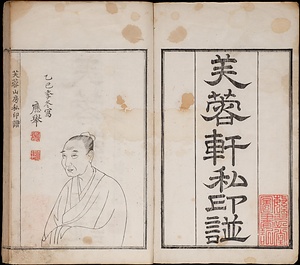 芙蓉軒私印譜
乙巳季冬寫
應舉
芙蓉山房私印譜